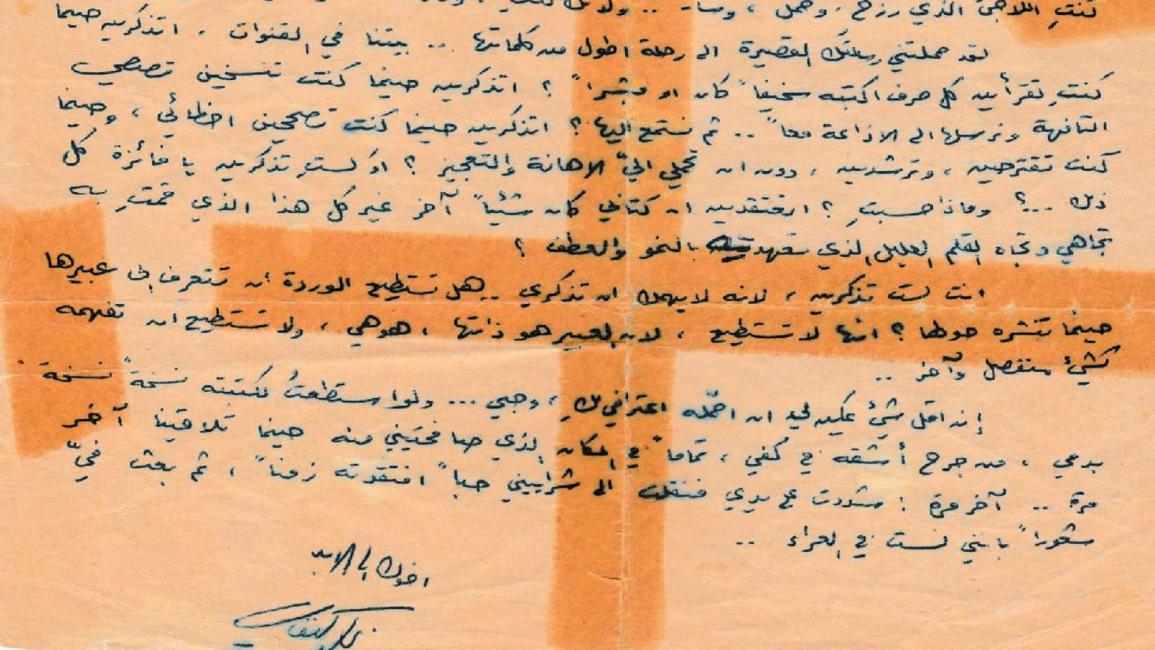 كنتِ اللاجئ الذي رزح، وحمل، وسار .. ولذلك كنتِ
لقد حملتني رسالتك القصيرة الى رحلة اطول من كلماتها .. بيتنا في القنوات . اتذكرين حينما
كنتِ تقرأين كل حرف اكتبه سخيفاً كان او مبشراً ؟ اتذكرين حينما كنت تنسخين قصصي
التافهة ونرسلها الى الاذاعة معاً .. ثم نستمع اليها ؟ اتذكرين حينما كنت تصححين اخطائي ، وحينما
كنت تقترحين ، وترشدين ، دون ان تحملي اليّ الاهانة والتعجيز ؟ او لستِ تذكرين يا فائزة كل
ذلك ...؟ وماذا حسبتِ ؟ اتعتقدين ان كتابي كان شيئاً آخر غير كل هذا الذي قمتِ به
تجاهي وتجاه القلم العليل الذي تعهدته بالنمو والعطف ؟
انت لست تذكرين ، لانه لا يهمك ان تذكري .. هل تستطيع الوردة ان تتعرف الى عبيرها
حينما تنشره حولها ؟ انها لا تستطيع ، لان العبير هو ذاتها ، هو هي ، ولا تستطيع ان تفهمه
كشيء منفصل وآخر ..
إن اقل شيء يمكن لي ان احمّله اعترافي لكِ ، وحبي ... ولو استطعتُ لكتبته نسخةً نسخة
بدمي ، من جرح أشقه في كفي ، تماماً في المكان الذي صافحتيني منه حينما تلاقينا آخر
مرة .. آخر مرة : شددت على يدي فنقلت الى شراييني حباً افتقدته زمناً ، ثم بعثت فيّ
شعوراً بانني لست في العراء ..
اخوك الى الابد
غسان كنفاني